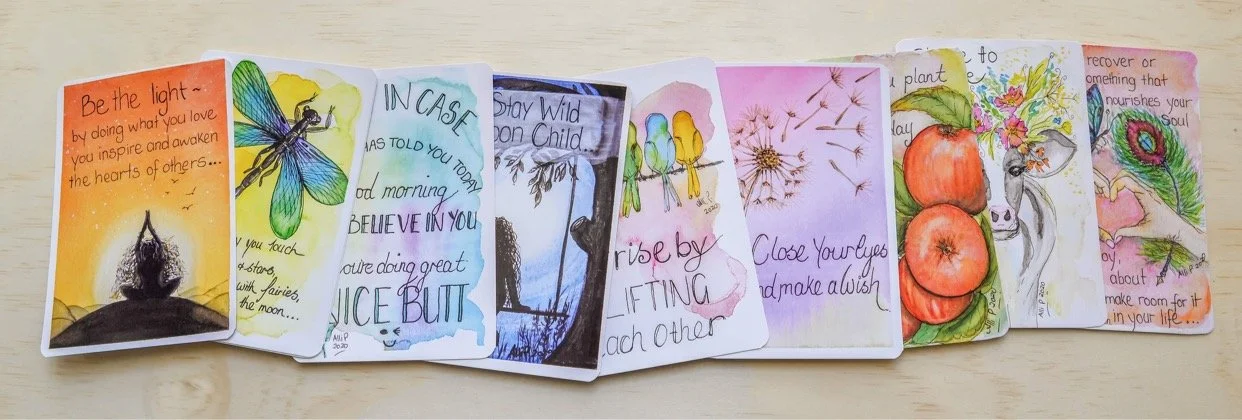 Be the light~
by doing what you love
you inspire and awaken
the hearts of others...
you touch
stars,
with fairies,
the moon...
Alli P
2020
IN CASE
HAS TOLD YOU TODAY
morning
BELIEVE IN YOU
you're doing great
NICE BUTT
Alli P
2020
Stay Wild
Child...
Alli P 2020
rise by
LIFTING
each Other
Alli P
2020
Close Your Eyes
and make a Wish
plant
Alli P 2020
to
Alli P 2020
recover or
something that
nourishes your
soul
about
make room for it
in your life...
Alli P 2020